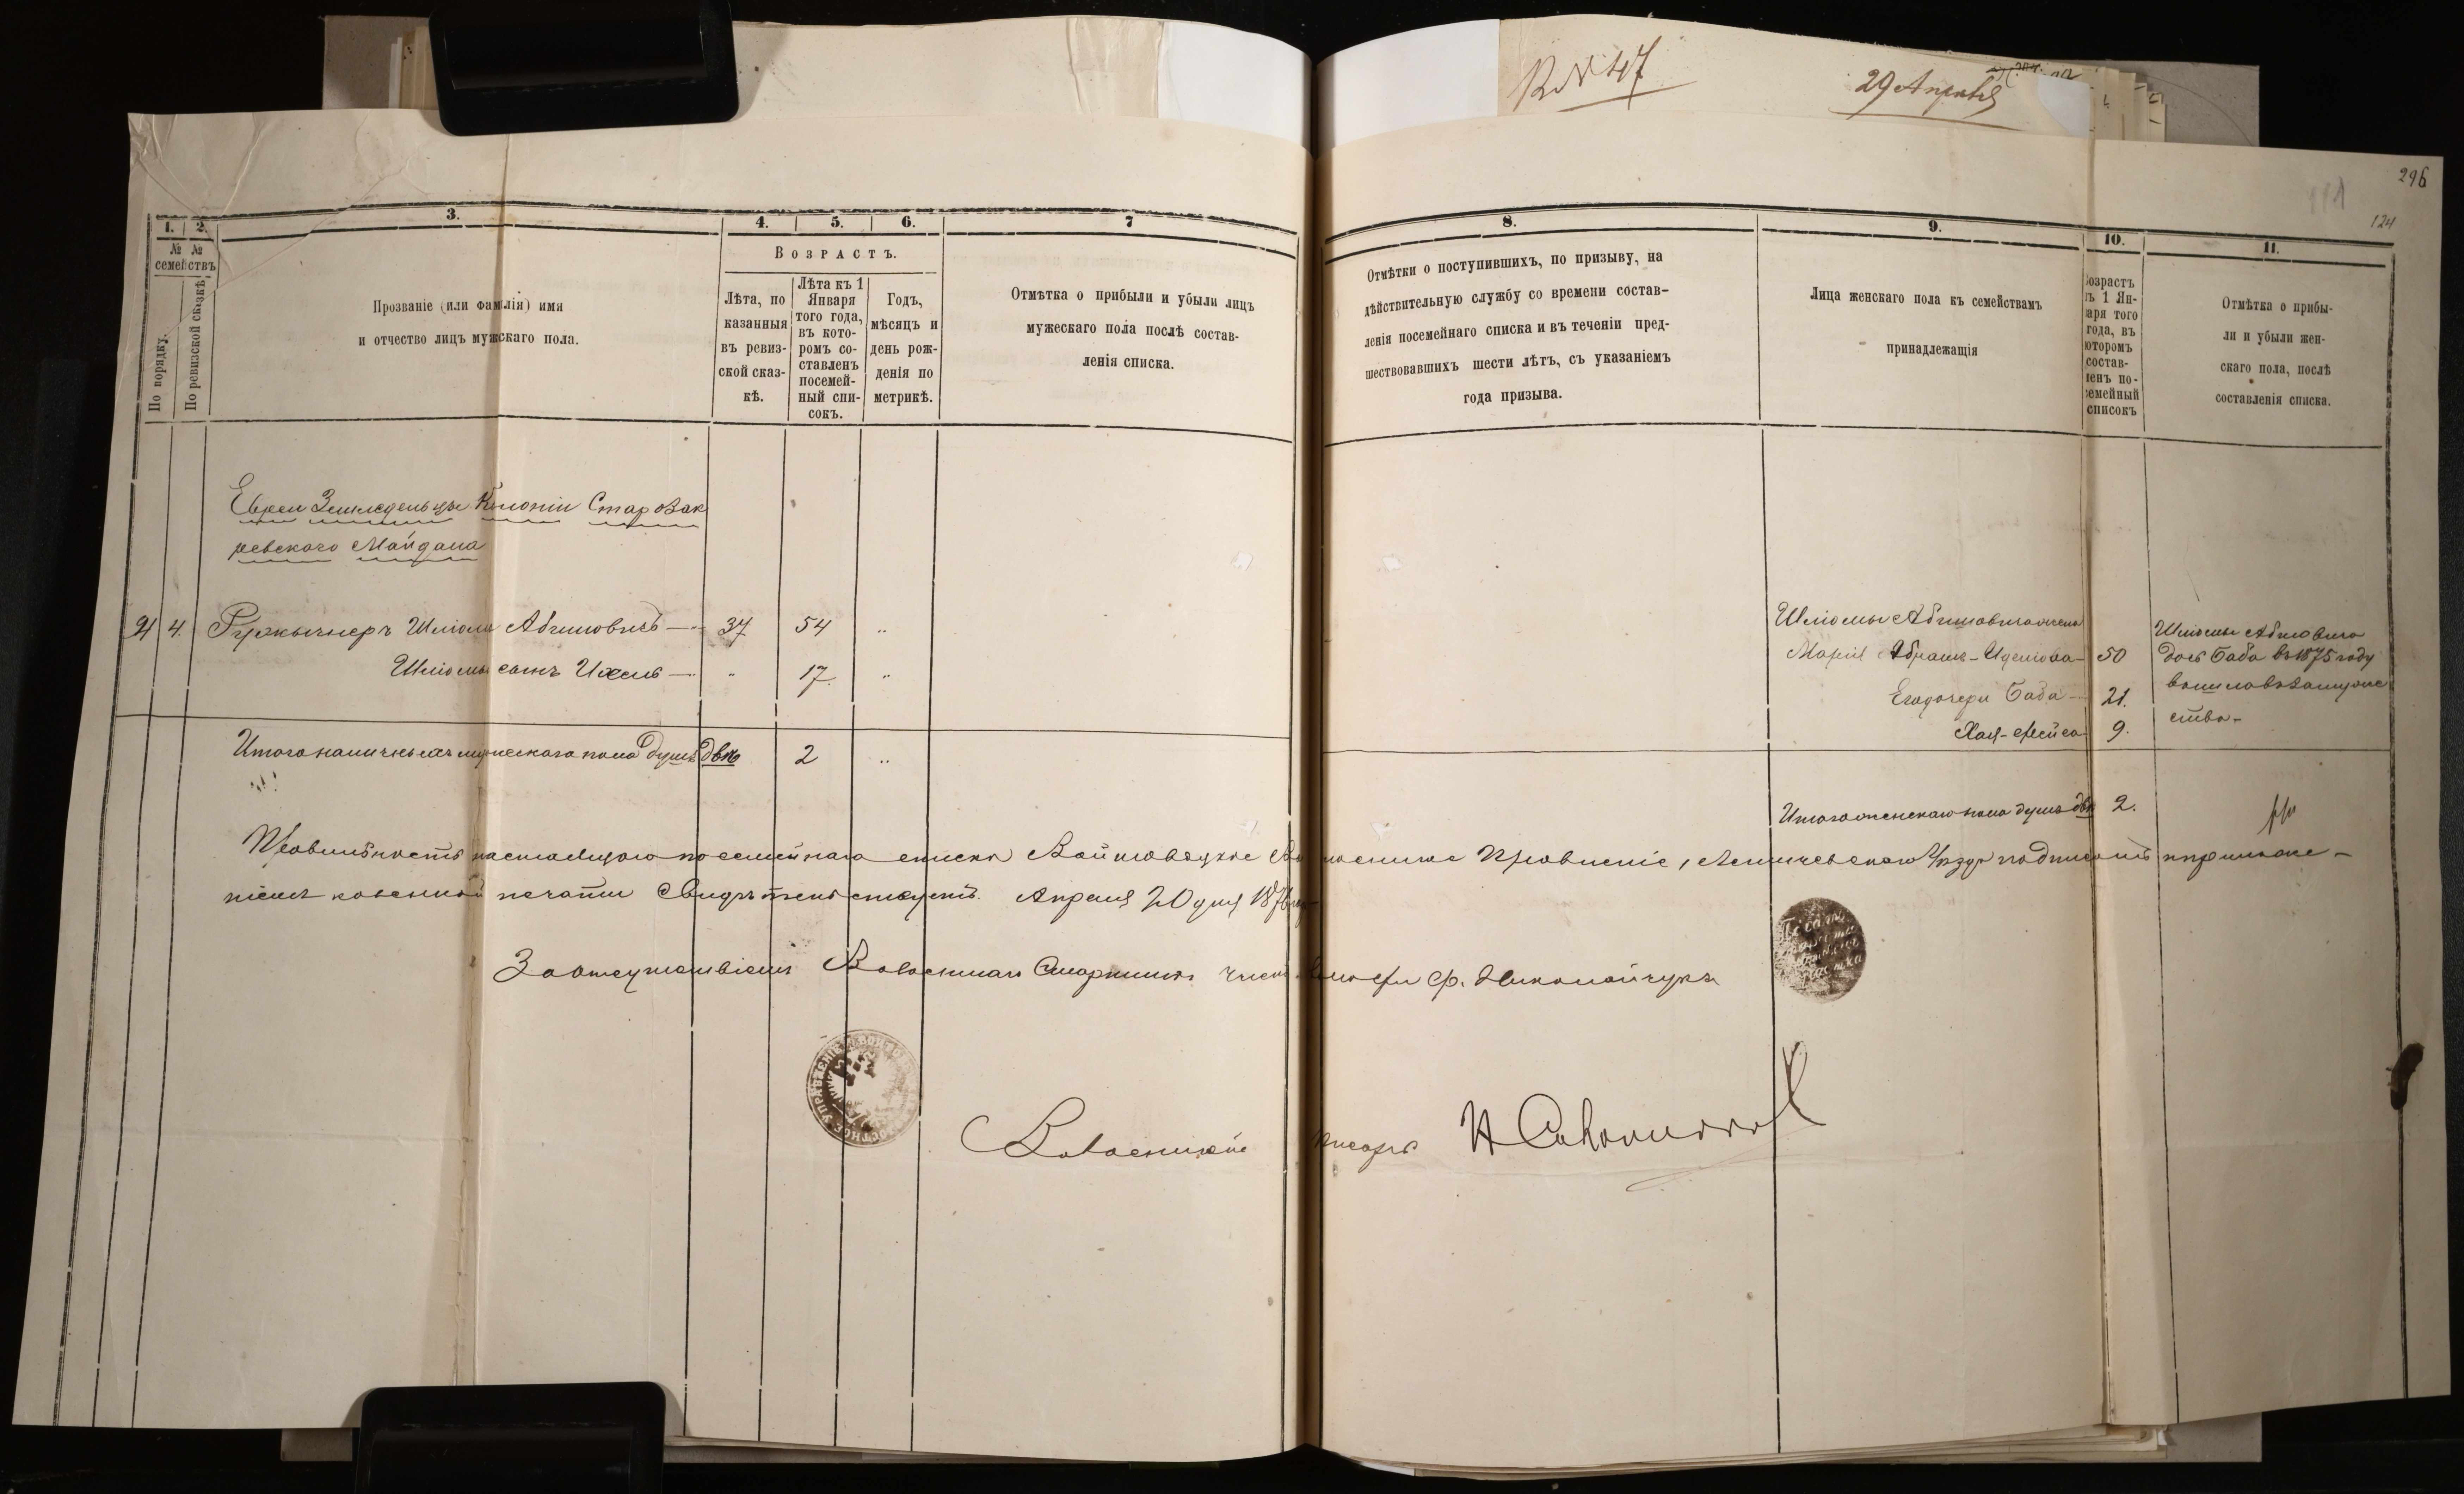 29 Апреля
296
124
1.
2.
3.
4.
5.
6.
7
№ №
семействъ
По порядку.
По ревизской сказкѣ
Прозваніе (или фамилія) имя
и отчество лицъ мужскаго пола.
Возрастъ.
Лѣта, по
казанныя
въ ревиз-
ской сказ-
кѣ.
Лѣта къ 1
Января
того года,
въ кото-
ромъ со-
ставленъ
посемей-
ный спи-
сокъ.
Годъ,
мѣсяцъ и
день рож-
денія по
метрикѣ.
Отмѣтка о прибыли и убыли лицъ
мужескаго пола послѣ состав-
ленія списка.
8.
9.
10.
11.
Отмѣтки о поступившихъ, по призыву, на
дѣйствительную службу со времени состав-
ленія посемейнаго списка и въ теченіи пред-
шествовавшихъ шести лѣтъ, съ указаніемъ
года призыва.
Лица женскаго пола къ семействамъ
принадлежащія
озрастъ
ъ 1 Ян-
аря того
года, въ
оторомъ
состав-
енъ по-
емейный
списокъ
Отмѣтка о прибы-
ли и убыли жен-
скаго пола, послѣ
составленія списка.
Евреи Земледельцы Колоніи Старозак
ревского Майдана
4. Шліома Абрамовичъ 37 54
Шліомы сынъ Ихель 17.
Итого наличныхъ мужескаго пола душъ двѣ 2
Шліомы жена
Марія 50
Его дочери Баба 21.
Хая-Фейга 9.
Шліомы
дочь Баба въ 1875 году
вышла въ замуже
ство
Итого женскаго пола душъ двѣ 2.
Правильность настоящаго посемейнаго списка Войтовецкое Волостное Правленіе, Летичевского уѣзда подписомъ и приложе-
ніемъ казенной печати Свидѣтельствуетъ. Апреля 20 дня 187
За отсутствіемъ Волостнаго Старшины Ф. Николайчукъ
Волостный писарь